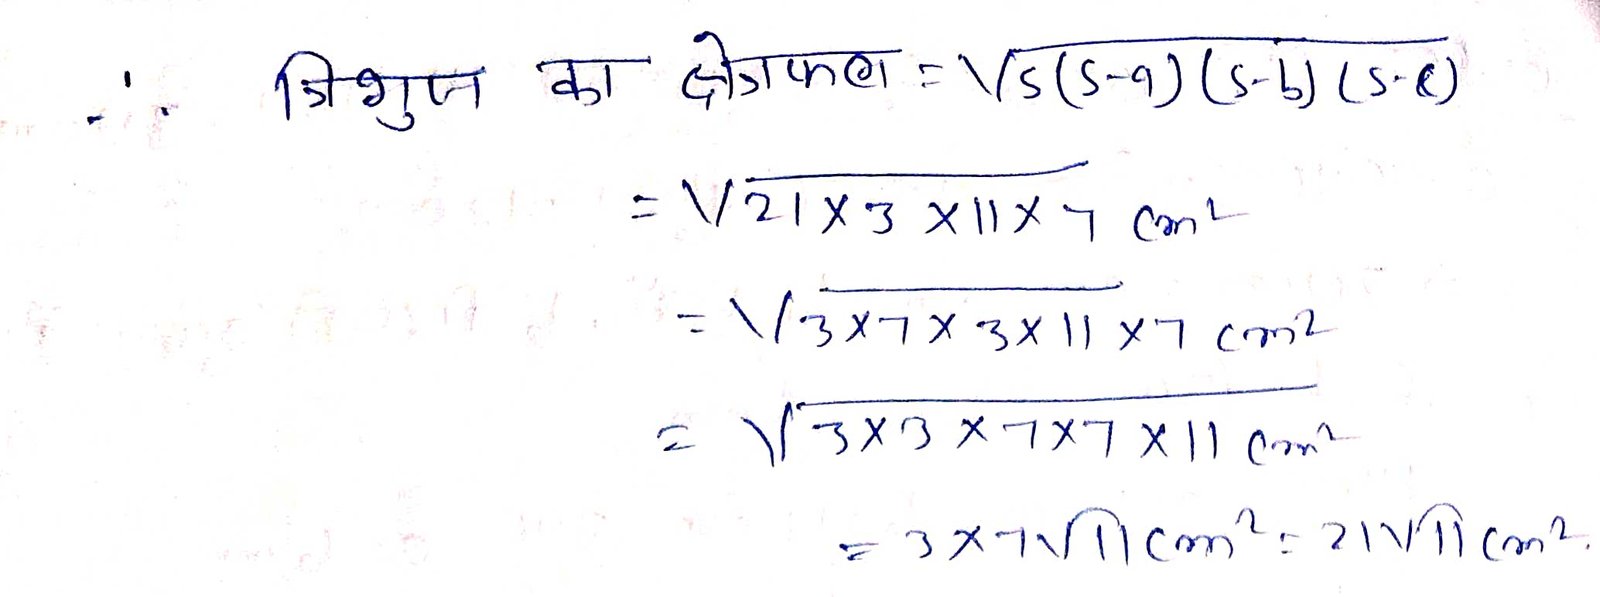 ∴ त्रिभुज का क्षेत्रफल = √s(s-a)(s-b)(s-c)
= √21×3×11×7 cm²
= √3×7×3×11×7 cm²
= √3×3×7×7×11 cm²
= 3×7√11 cm² = 21√11 cm².